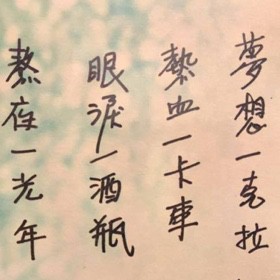 夢想一克拉
熱血一卡車
眼淚一酒瓶
熬夜一光年